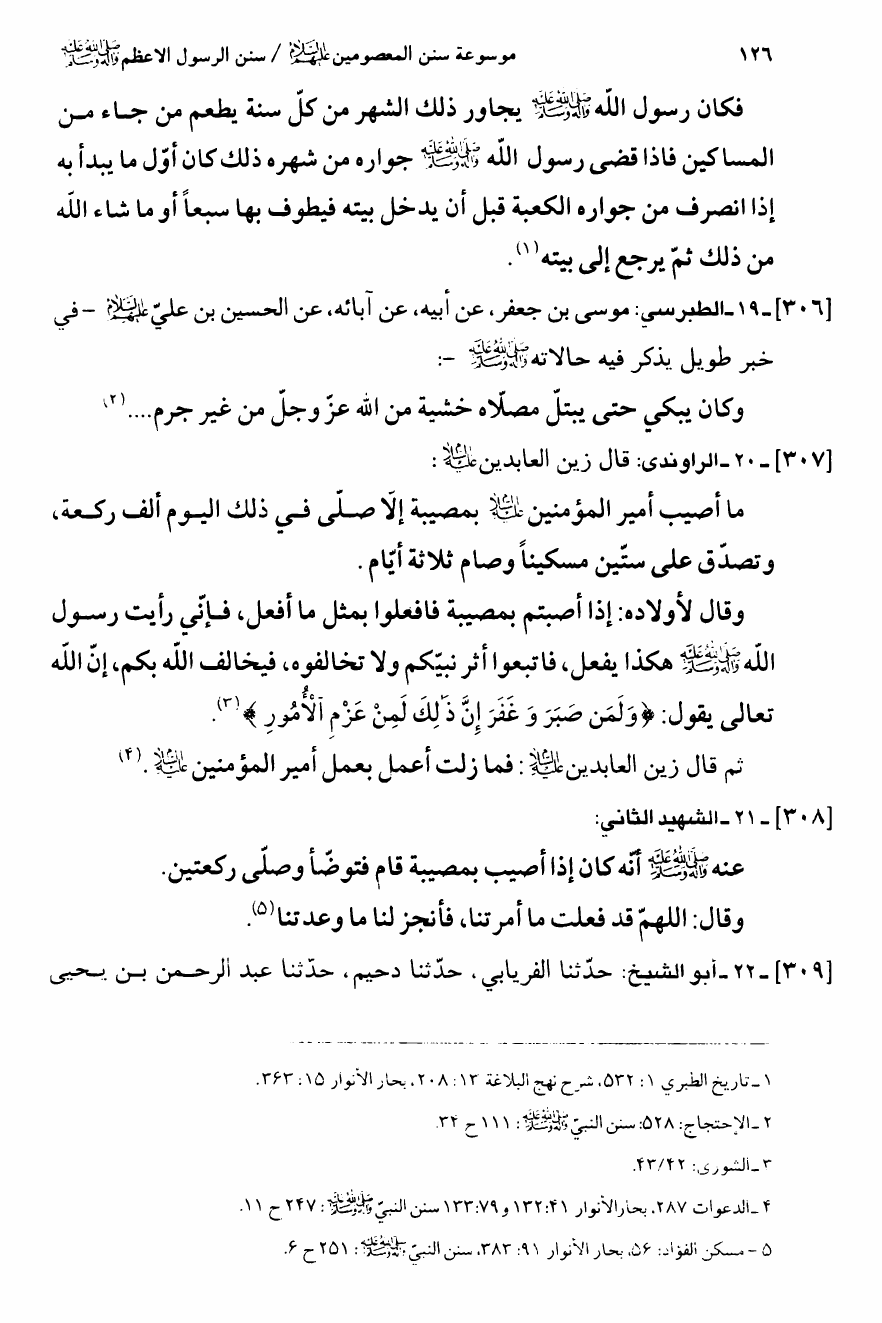 ١٢٦ موسوعة سنن المعصومين عليهم السلام / سنن الرسول الاعظم صلى الله عليه وآله وسلم
فكان رسول اللّه صلى الله عليه وآله وسلم يجاور ذلك الشهر من كلّ سنة يطعم من جـاء مـن
المساكين فاذا قضى رسول اللّه صلى الله عليه وآله وسلم جواره من شهره ذلك كان أوّل ما يبدأ به
إذا انصرف من جواره الكعبة قبل أن يدخل بيته فيطوف بها سبعاً أو ما شاء اللّه
من ذلك ثمّ يرجع إلى بيته(١).
[٣٠٦] ـ ١٩ ـ الطبرسي: موسى بن جعفر، عن أبيه، عن آبائه، عن الحسين بن عليّ عليهم السلام - في
خبر طويل يذكر فيه حالاته صلى الله عليه وآله وسلم -:
وكان يبكي حتى يبتلّ مصلّاه خشية من الله عزّ وجلّ من غير جرم....(٢)
[٣٠٧] ـ ٢٠ ـ الراوندى: قال زين العابدين عليه السلام :
ما أصيب أمير المؤمنين عليه السلام بمصيبة إلّا صـلّى فـي ذلك اليـوم ألف ركـعة،
وتصدّق على ستّين مسكيناً وصام ثلاثة أيّام .
وقال لأولاده: إذا أصبتم بمصيبة فافعلوا بمثل ما أفعل، فـإنّي رأيت رسـول
اللّه صلى الله عليه وآله وسلم هكذا يفعل، فاتبعوا أثر نبيّكم ولا تخالفوه، فيخالف اللّه بكم، إنّ اللّه
تعالى يقول: ﴿وَلَمَن صَبَرَ وَ غَفَرَ إِنَّ ذَٰلِكَ لَمِنْ عَزْمِ ٱلْأُمُورِ ﴾(٣).
ثم قال زين العابدين عليه السلام : فما زلت أعمل بعمل أمير المؤمنين عليه السلام .(۴)
[٣٠٨] ـ ٢١ ـ الشهيد الثاني:
عنه صلى الله عليه وآله وسلم أنّه كان إذا أصيب بمصيبة قام فتوضّأ وصلّى ركعتين.
وقال: اللهمّ قد فعلت ما أمرتنا، فأنجز لنا ما وعدتنا(۵).
[٣٠٩] ـ ٢٢ ـ أبو الشيخ: حدّثنا الفريابي، حدّثنا دحيم، حدّثنا عبد الرحـمن بـن يـحيى
١ ـ تاريخ الطبري ١: ۵٣٢، شرح نهج البلاغة ١٣: ٢٠٨، بحار الأنوار ١۵: ٣۶٣.
٢ ـ الإحتجاج: ۵٢٨: سنن النبيّ صلى الله عليه وآله وسلم : ١١١ ح ٣۴.
٣ ـ الشورى: ۴٢/۴٣.
۴ ـ الدعوات ٢٨٧، بحار الأنوار ۴١:١٣٢ و ٧٩:١٣٣ سنن النبيّ صلى الله عليه وآله وسلم : ٢۴٧ ح ١١.
۵ - مسكن الفؤاد: ۵۶، بحار الأنوار ٩١: ٣٨٣، سنن النبيّ صلى الله عليه وآله وسلم : ٢۵١ ح ۶.